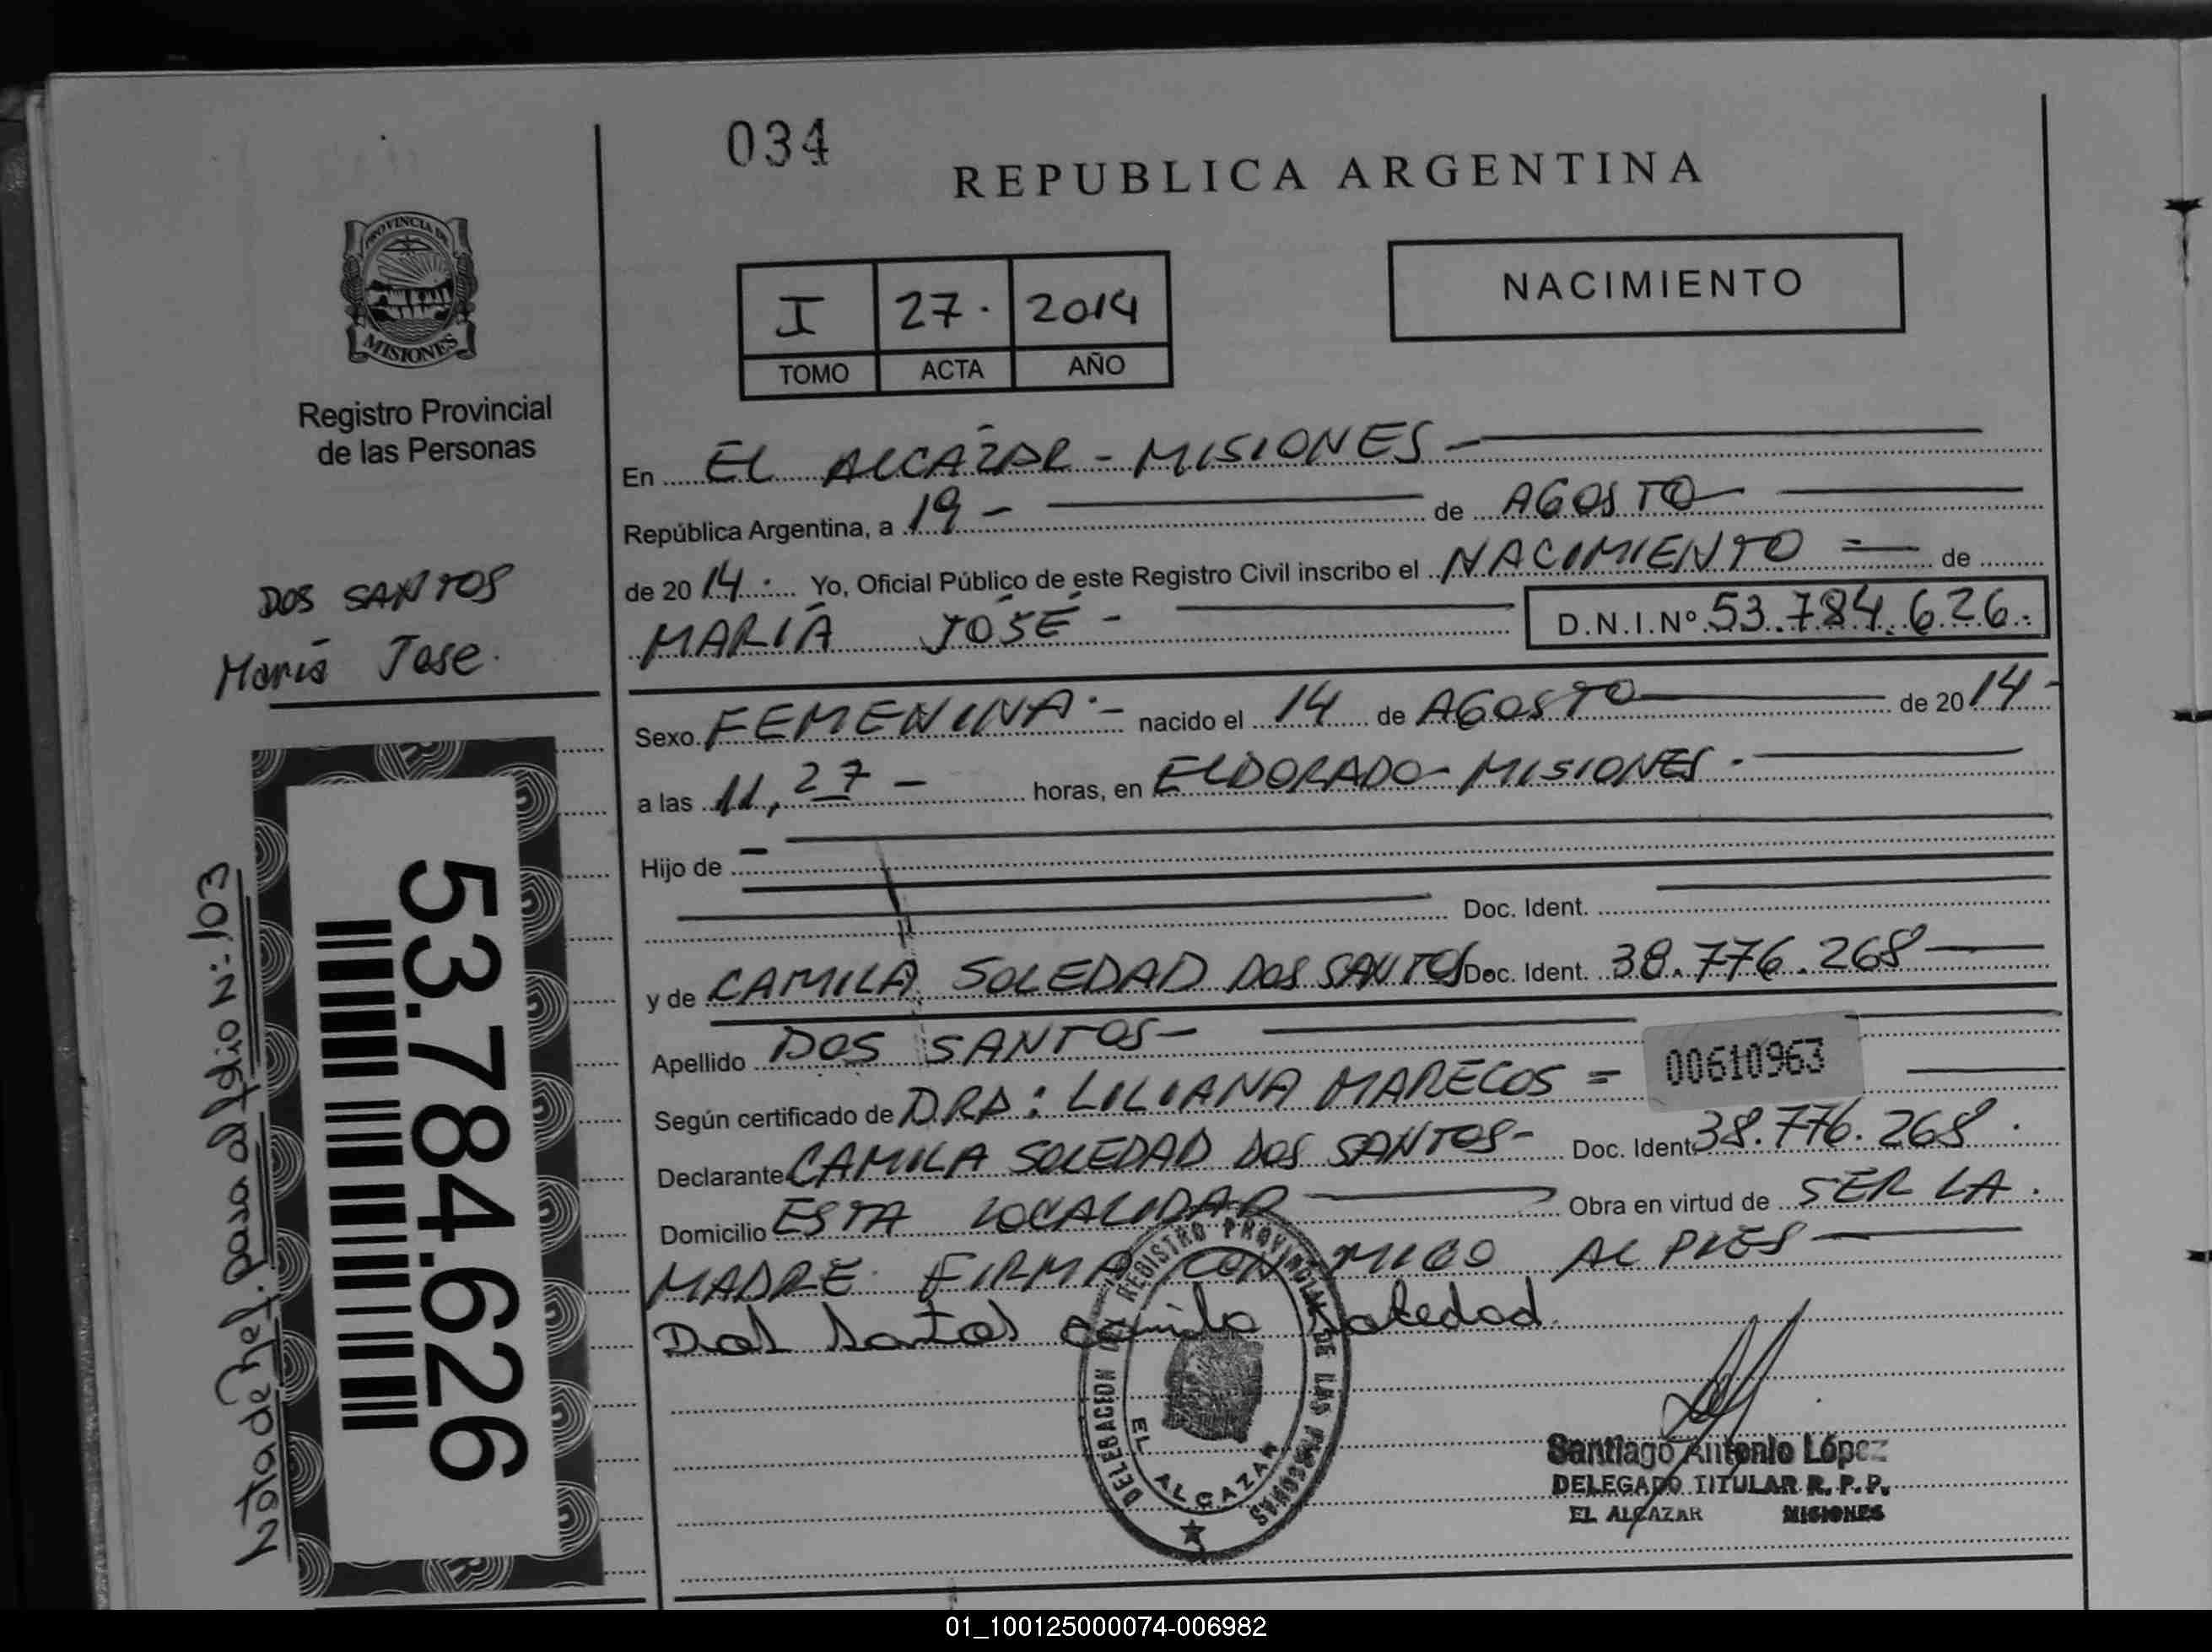 034
REPUBLICA ARGENTINA
PROVINCIA DE
MISIONES
Registro Provincial
de las Personas
I 27. 2014
TOMO ACTA AÑO
NACIMIENTO
En EL ALCAZAR - MISIONES -
República Argentina, a 19 - de AGOSTO
de 2014. Yo, Oficial Público de este Registro Civil inscribo el NACIMIENTO = de
MARIA JOSÉ - D.N.I.Nº 53.784.626.
DOS SANTOS
Maria Jose.
Sexo FEMENINA.- nacido el 14 de AGOSTO de 2014-
a las 11,27 - horas, en ELDORADO - MISIONES.-
Hijo de -
Doc. Ident.
y de CAMILA SOLEDAD DOS SANTOS Doc. Ident. 38.776.268
Apellido DOS SANTOS -
Según certificado de DRA: LILIANA MARECOS = 00610963
Declarante CAMILA SOLEDAD DOS SANTOS - Doc. Ident 38.776.268.
Domicilio ESTA LOCALIDAD Obra en virtud de SER LA.
MADRE. FIRMA CON MIGO AL PIES
Dos Santos Camila Soledad
53.784.626
Nota de Ref. pasa al folio Nº: 103
DELEGACION DEL REGISTRO PROVINCIAL DE LAS PERSONAS
EL ALCAZAR
Santiago Antonio López
DELEGADO TITULAR R. P. P.
EL ALCAZAR MISIONES
01_100125000074-006982